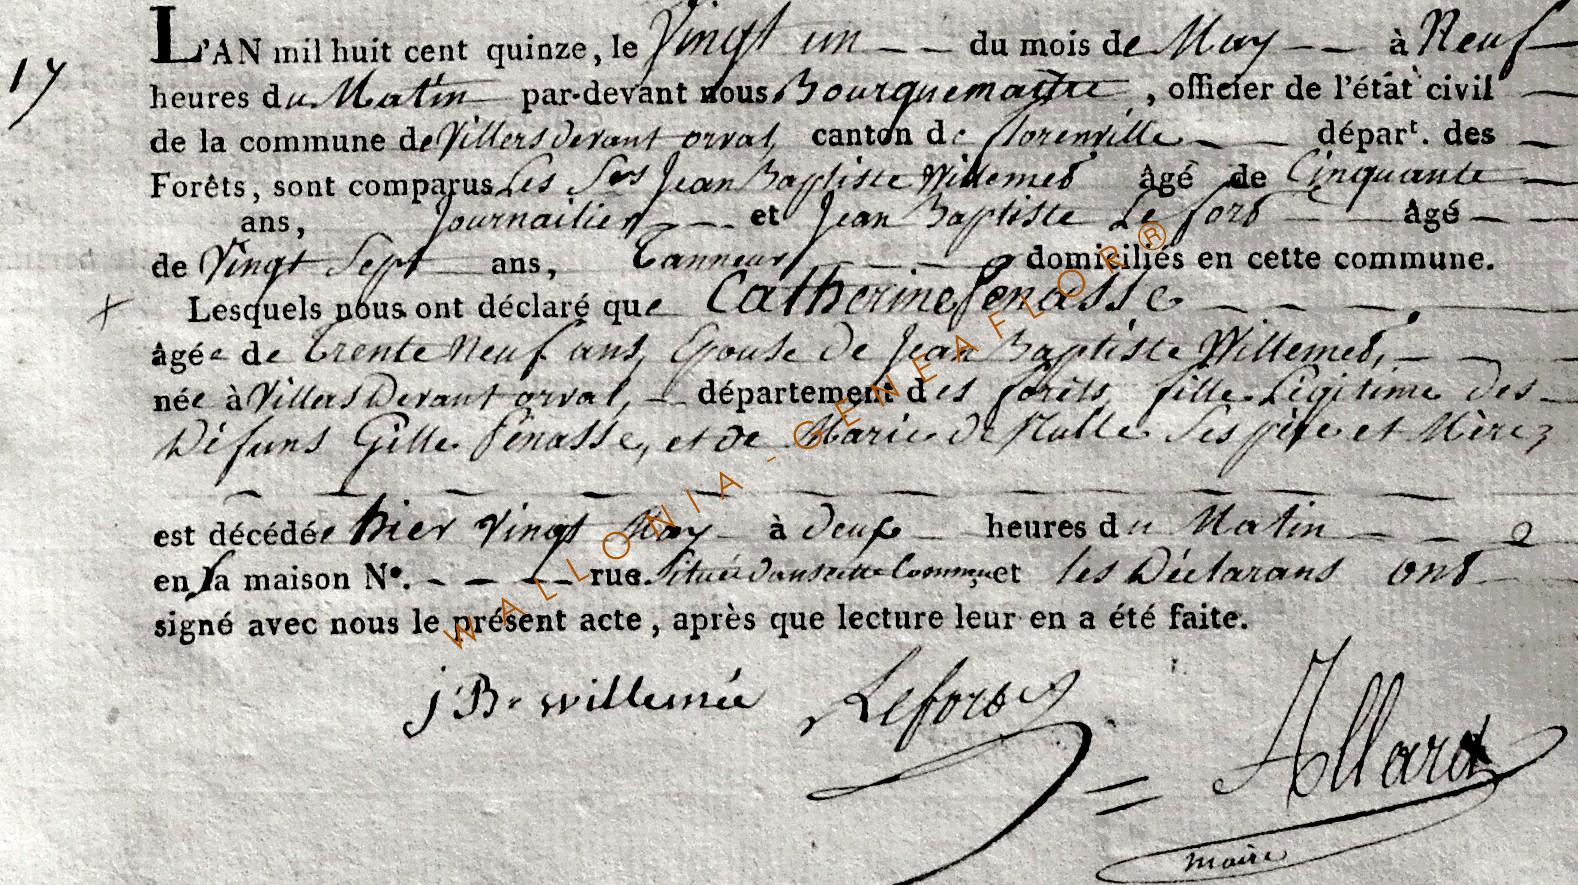 L'AN mil huit cent quinze, le Vingt un du mois de May à Neuf
17
heures du Matin par-devant nous Bourguemaitre, officier de l'état civil
de la commune de Villers devant orval, canton de florenville départ. des
Forêts, sont comparus Les Srs Jean Baptiste Willemet âgé de Cinquante
ans, Journailier et Jean Baptiste Le fort âgé
de Vingt Sept ans, Tanneur domiciliés en cette commune.
Lesquels nous ont déclaré que Catherine Penasse
âgée de trente Neuf ans, Epouse de Jean Baptiste Willemet,
née à Villers Devant orval, département des forêts, fille Légitime des
Défuns Gille Penasse, et de Marie de Nulle Ses père et Mère
est décédée hier vingt May à deux heures du Matin
en la maison No. rue Située dans cette Commune et les Déclarans ont
signé avec nous le présent acte, après que lecture leur en a été faite.
JB willemée Lefort Allard
maire
WALLONIA - GENEAFLOR ®